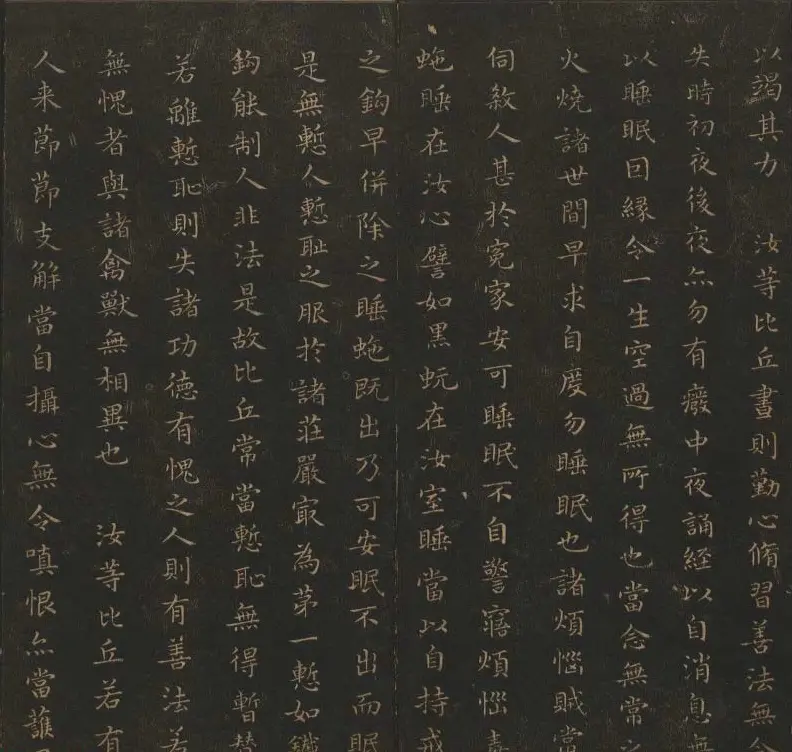 以竭其力 汝等比丘晝則勤心脩習善法無令
失時初夜後夜亦勿有癈中夜誦經以自消息無
以睡眠因緣令一生空過無所得也當念無常之
火燒諸世間早求自度勿睡眠也諸煩惱賊常
伺煞人甚於冤家安可睡眠不自警寤煩惱毒
虵睡在汝心譬如黑蚖在汝室睡當以自持戒
之鈎早併除之睡虵既出乃可安眠不出而眠
是無慙人慙耻之服於諸莊嚴冣為苐一慙如鐵
鈎能制人非法是故比丘常當慙恥無得暫替
若離慙恥則失諸功德有愧之人則有善法若
無愧者與諸禽獸無相異也 汝等比丘若有
人来節節支解當自攝心無令嗔恨亦當護